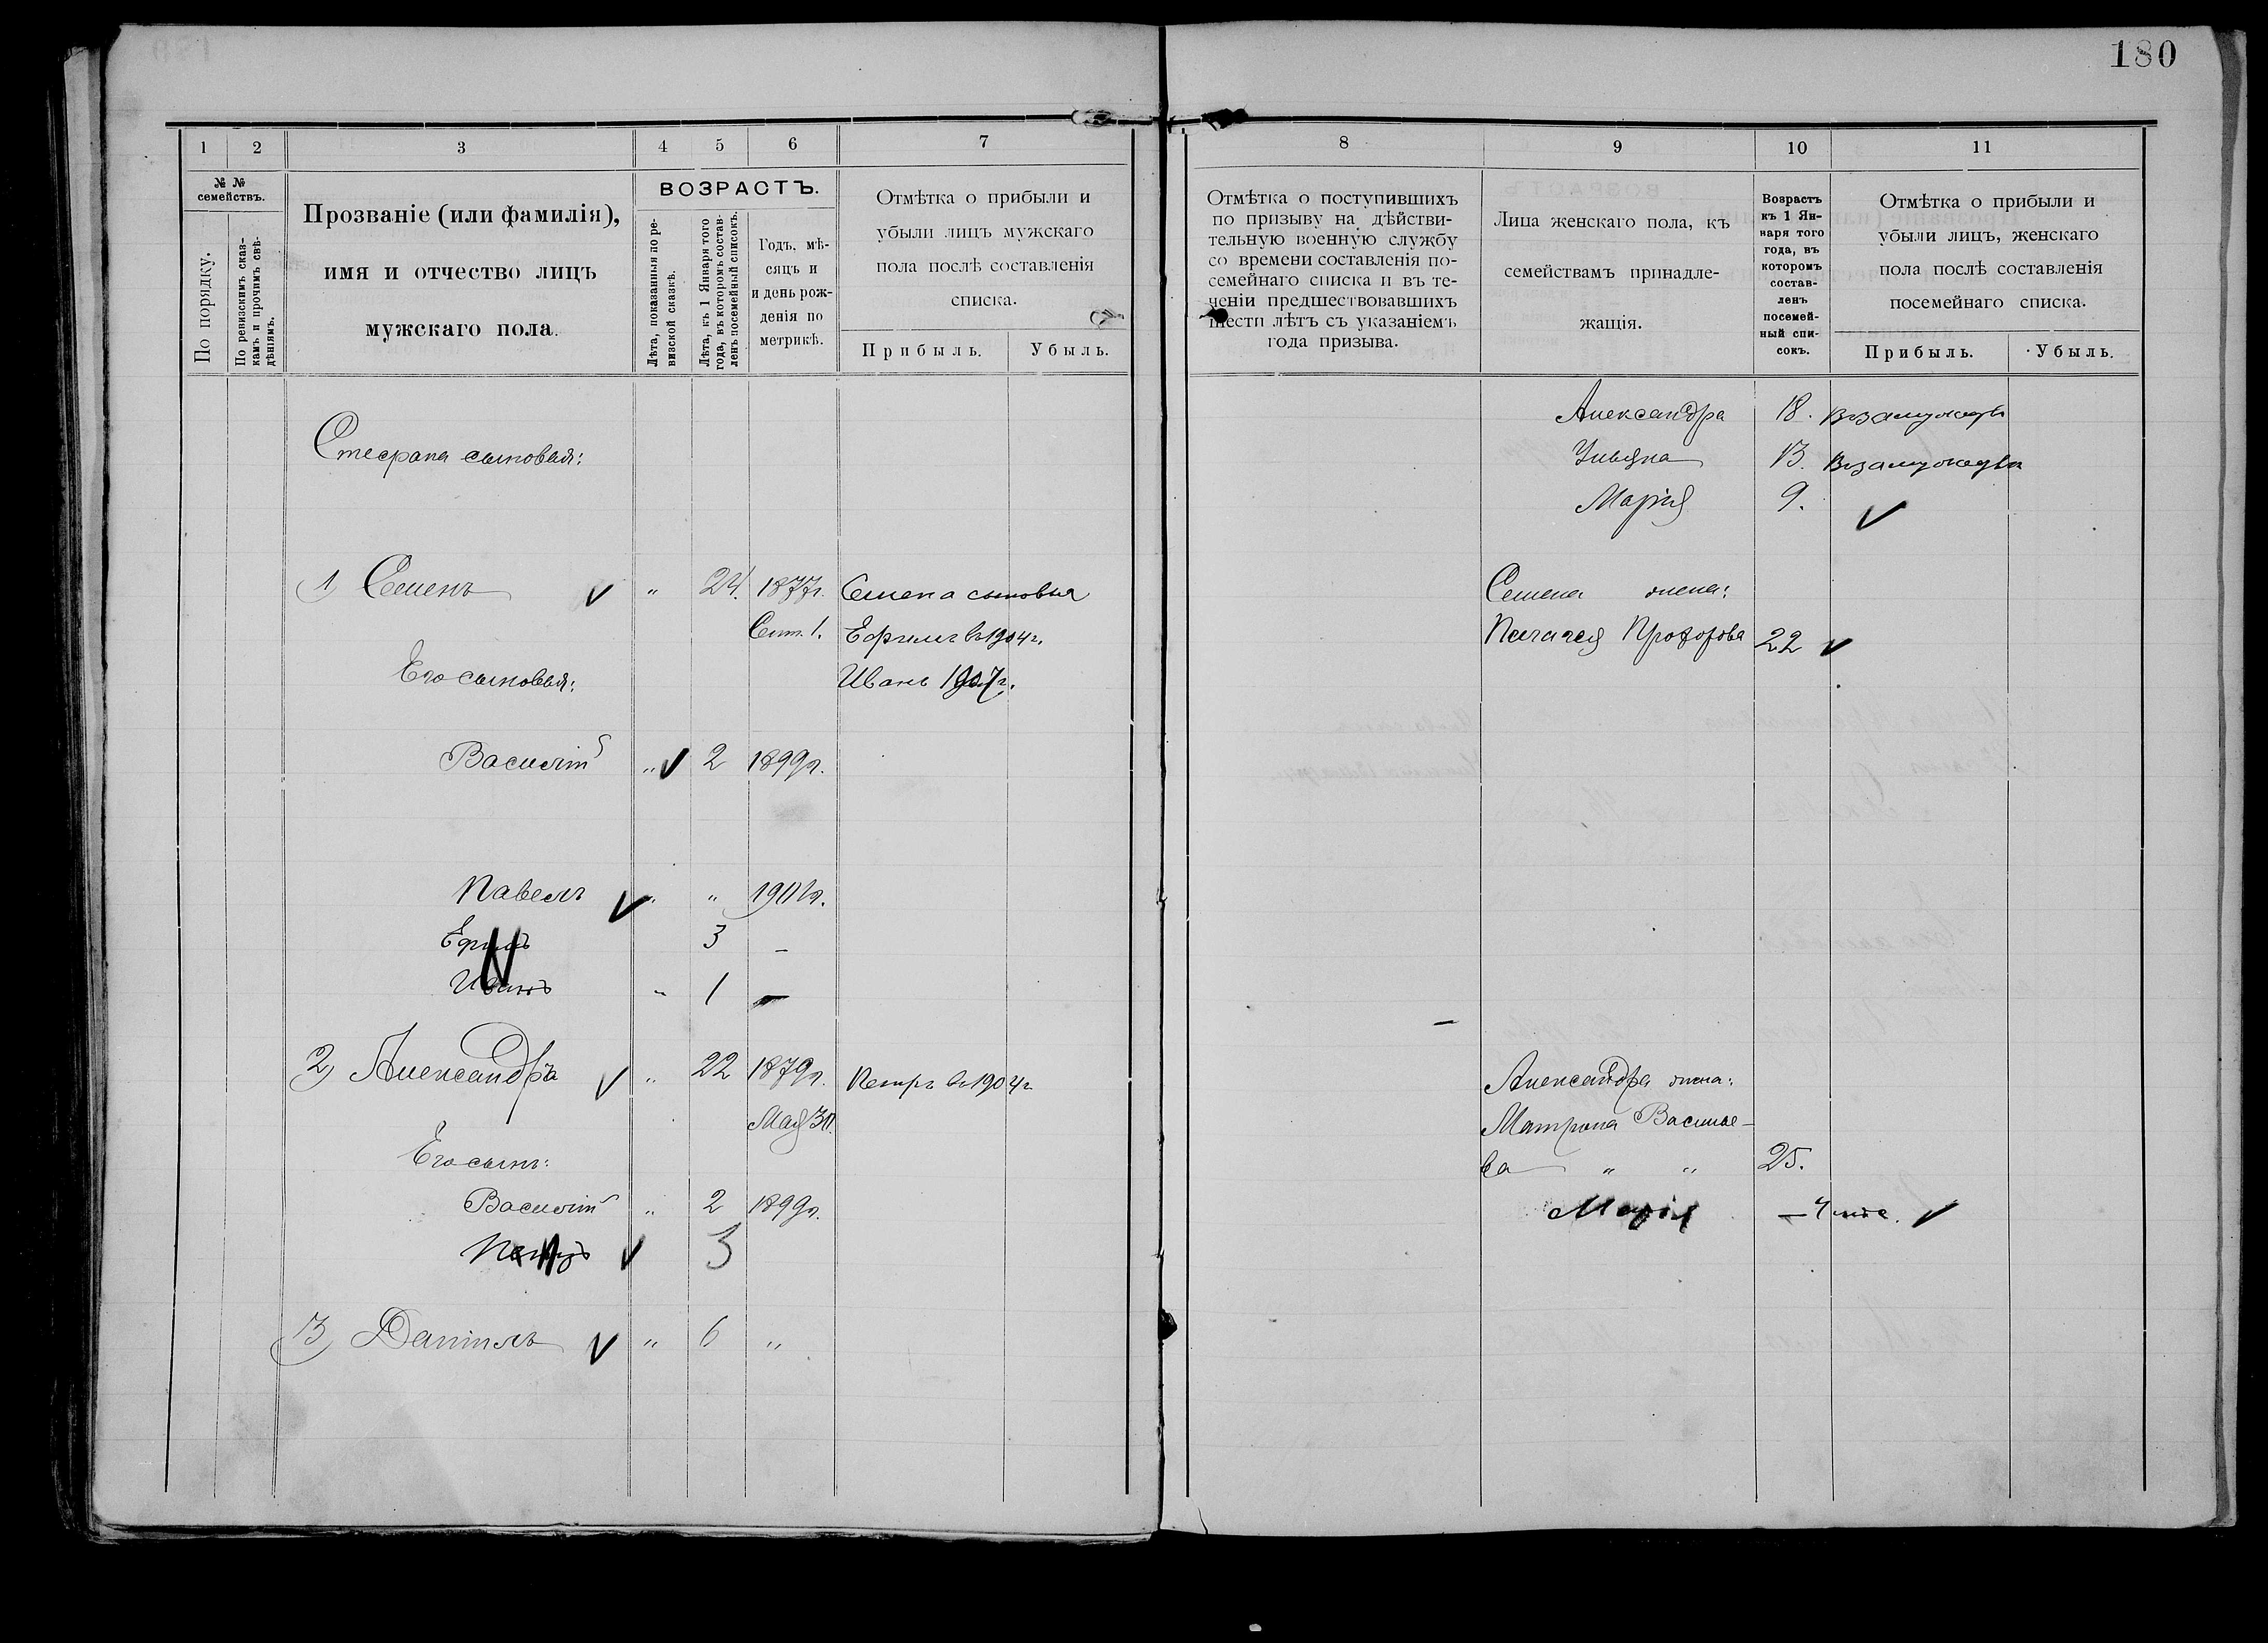 180
1 2 3 4 5 6 7
№ №
семействъ.
По порядку.
По ревизскимъ сказ-
камъ и прочимъ свѣ-
дѣніямъ.
Прозваніе (или фамилія),
имя и отчество лицъ
мужскаго пола.
ВОЗРАСТЪ.
Лѣта, показанныя по ре-
визской сказкѣ.
Лѣта, къ 1 Января того
года, въ которомъ состав-
ленъ посемейный списокъ.
Годъ, мѣ-
сяцъ и
и день рож-
денія по
метрикѣ.
Отмѣтка о прибыли и
убыли лицъ мужскаго
пола послѣ составленія
списка.
Прибыль. Убыль.
Стефана сыновья:
1) Семенъ " 24. 1877г. Семена сыновья
Сент. 1. Ефимъ въ 1904г.
Его сыновья: Иванъ 1907г.
Василій " 2 1899г.
Павелъ " " 1901г.
Ефимъ 3 –
Иванъ " 1 –
2) Александръ " 22 1879г. Петръ въ 1904г
Мая 30.
Его сынъ:
Василій " 2 1899г.
Петръ 3
3) Даніилъ " 6 "
8 9 10 11
Отмѣтка о поступившихъ
по призыву на дѣйстви-
тельную военную службу
со времени составленія по-
семейнаго списка и въ те-
ченіи предшествовавшихъ
шести лѣтъ съ указаніемъ
года призыва.
Лица женскаго пола, къ
семействамъ принадле-
жащія.
Возрастъ
къ 1 Ян-
варя того
года, въ
которомъ
состав-
ленъ
посемей-
ный спи-
сокъ.
Отмѣтка о прибыли и
убыли лицъ, женскаго
пола послѣ составленія
посемейнаго списка.
Прибыль. Убыль.
Александра 18. В замужествѣ
Ульяна 13. В замужествѣ
Марія 9.
Семена жена:
Пелагея Прохорова 22
Александра жена:
Матрона Василье-
ва " " 25.
Марія – 4